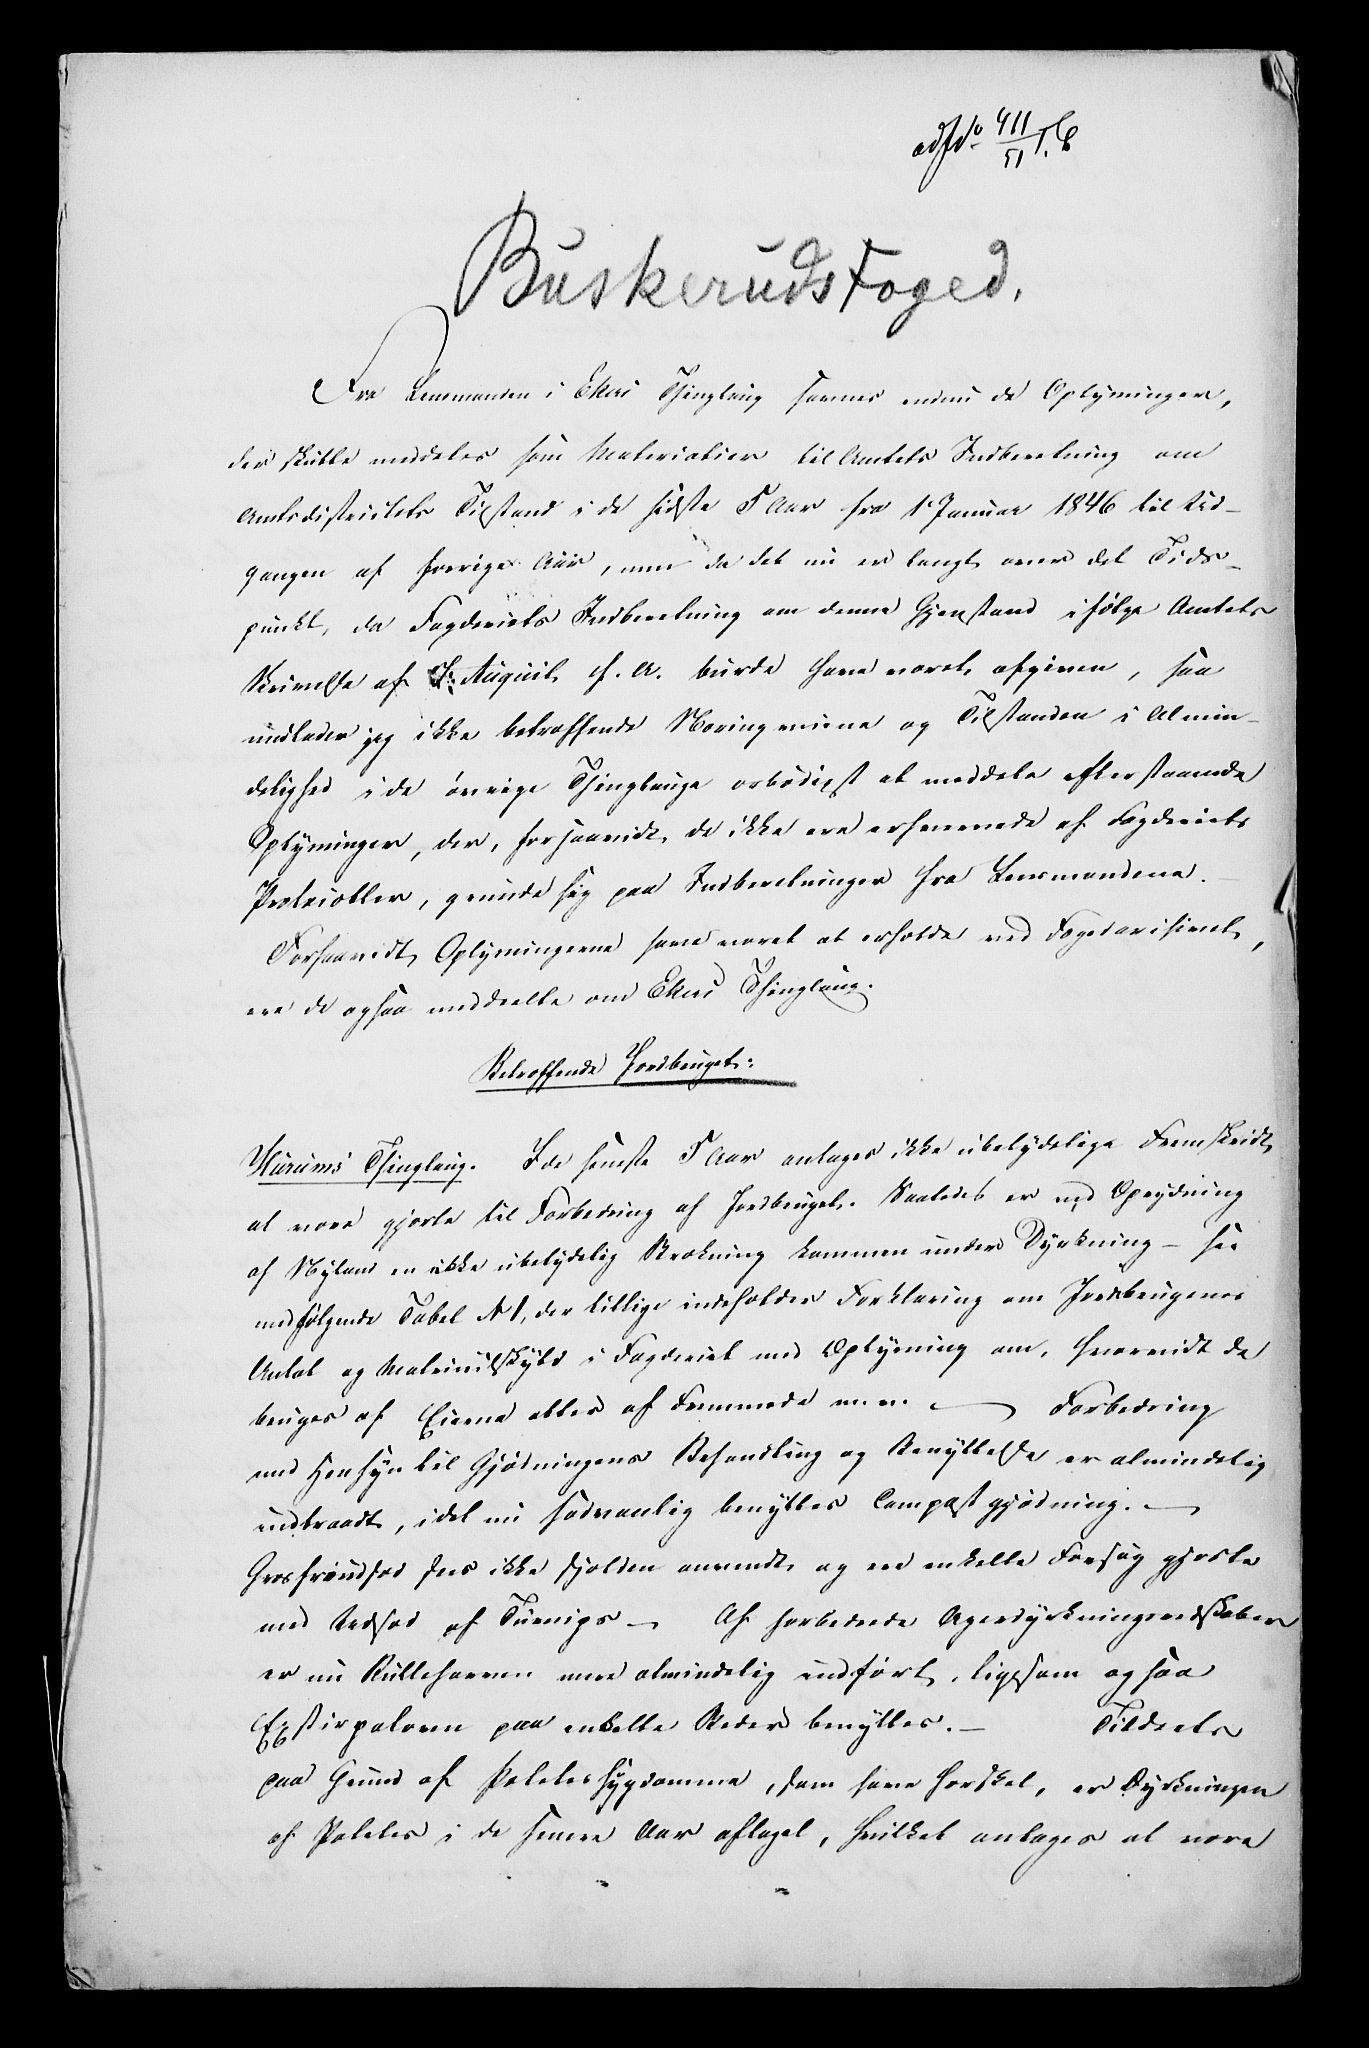 ad No 411/51
Buskeruds Foged.
Fra Lensmanden i Ekers Thinglaug savnes endnu de Oplysninger,
der skulle meddeles som Materialier til Amtets Indberetning om
Amtsdistrictets Tilstand i de sidste 5 Aar fra 1 Januar 1846 til Ud-
gangen af forrige Aar, men da det nu er langt over det Tids-
punkt, da Fogderiets Indberetning om denne Gjenstand ifølge Amtets
Skrivelse af August f. A. burde have været afgiven, saa
undlader jeg ikke betræffende Næringsveiene og Tilstanden i Almin-
delighed i de øvrige Thinglauge ærbødigst at meddele efterstaaende
Oplysninger, der, forsaavidt de ikke ere erhvervede af Fogderiets
Protocoller, grunde sig paa Indberetninger fra Lensmændene.
Forsaavidt Oplysningerne have været at erholde ved Fogedarchivet,
ere de ogsaa meddeelte om Ekers Thinglaug.
Betræffende Jordbruget:
Hurums Thinglaug. I de seneste 5 Aar antages ikke ubetydelige Fremskridt
at være gjorte til Forbedring af Jordbruget. Saaledes er ved Oprydning
af Nyland en ikke ubetydelig Strækning kommen under Dyrkning - see
medfølgende Tabel No 1, der tillige indeholder Forklaring om Jordbrugenes
Antal og Matriculskyld i Fogderiet med Oplysning om, hvorvidt de
bruges af Eierne eller af Fremmede m. v. — Forbedring
med Hensyn til Gjødningens Behandling og Benyttelse er almindelig
indtraadt, idet nu sædvanlig benyttes Compostgjødning. —
Græsfrøudsæd sees ikke sjelden anvendt og ere enkelte Forsøg gjorte
med Udsæd af Turnips — Af forbedrede Agerdyrkningsredskaber
er nu Rulleharven mere almindelig indført, ligesom ogsaa
Exstirpatoren paa enkelte Steder benyttes. — Tildeels
paa Grund af Potetessygdomme, som have hersket, er Dyrkningen
af Poteter i de senere Aar aftaget, hvilket antages at være